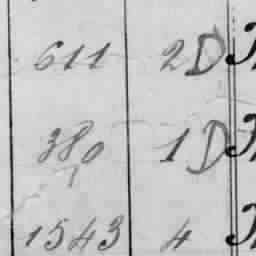 611 2D
380 1D
1543 4